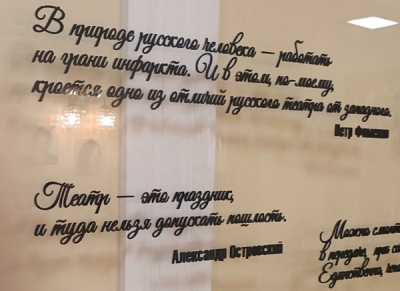 В природе русского человека — работать
на грани инфаркта. И в этом, по-моему,
кроется одно из отличий русского театра от западного.
Петр Фоменко
Театр — это праздник,
и туда нельзя допускать пошлость.
Александр Островский
Можно
в передаче, при
Единственно,